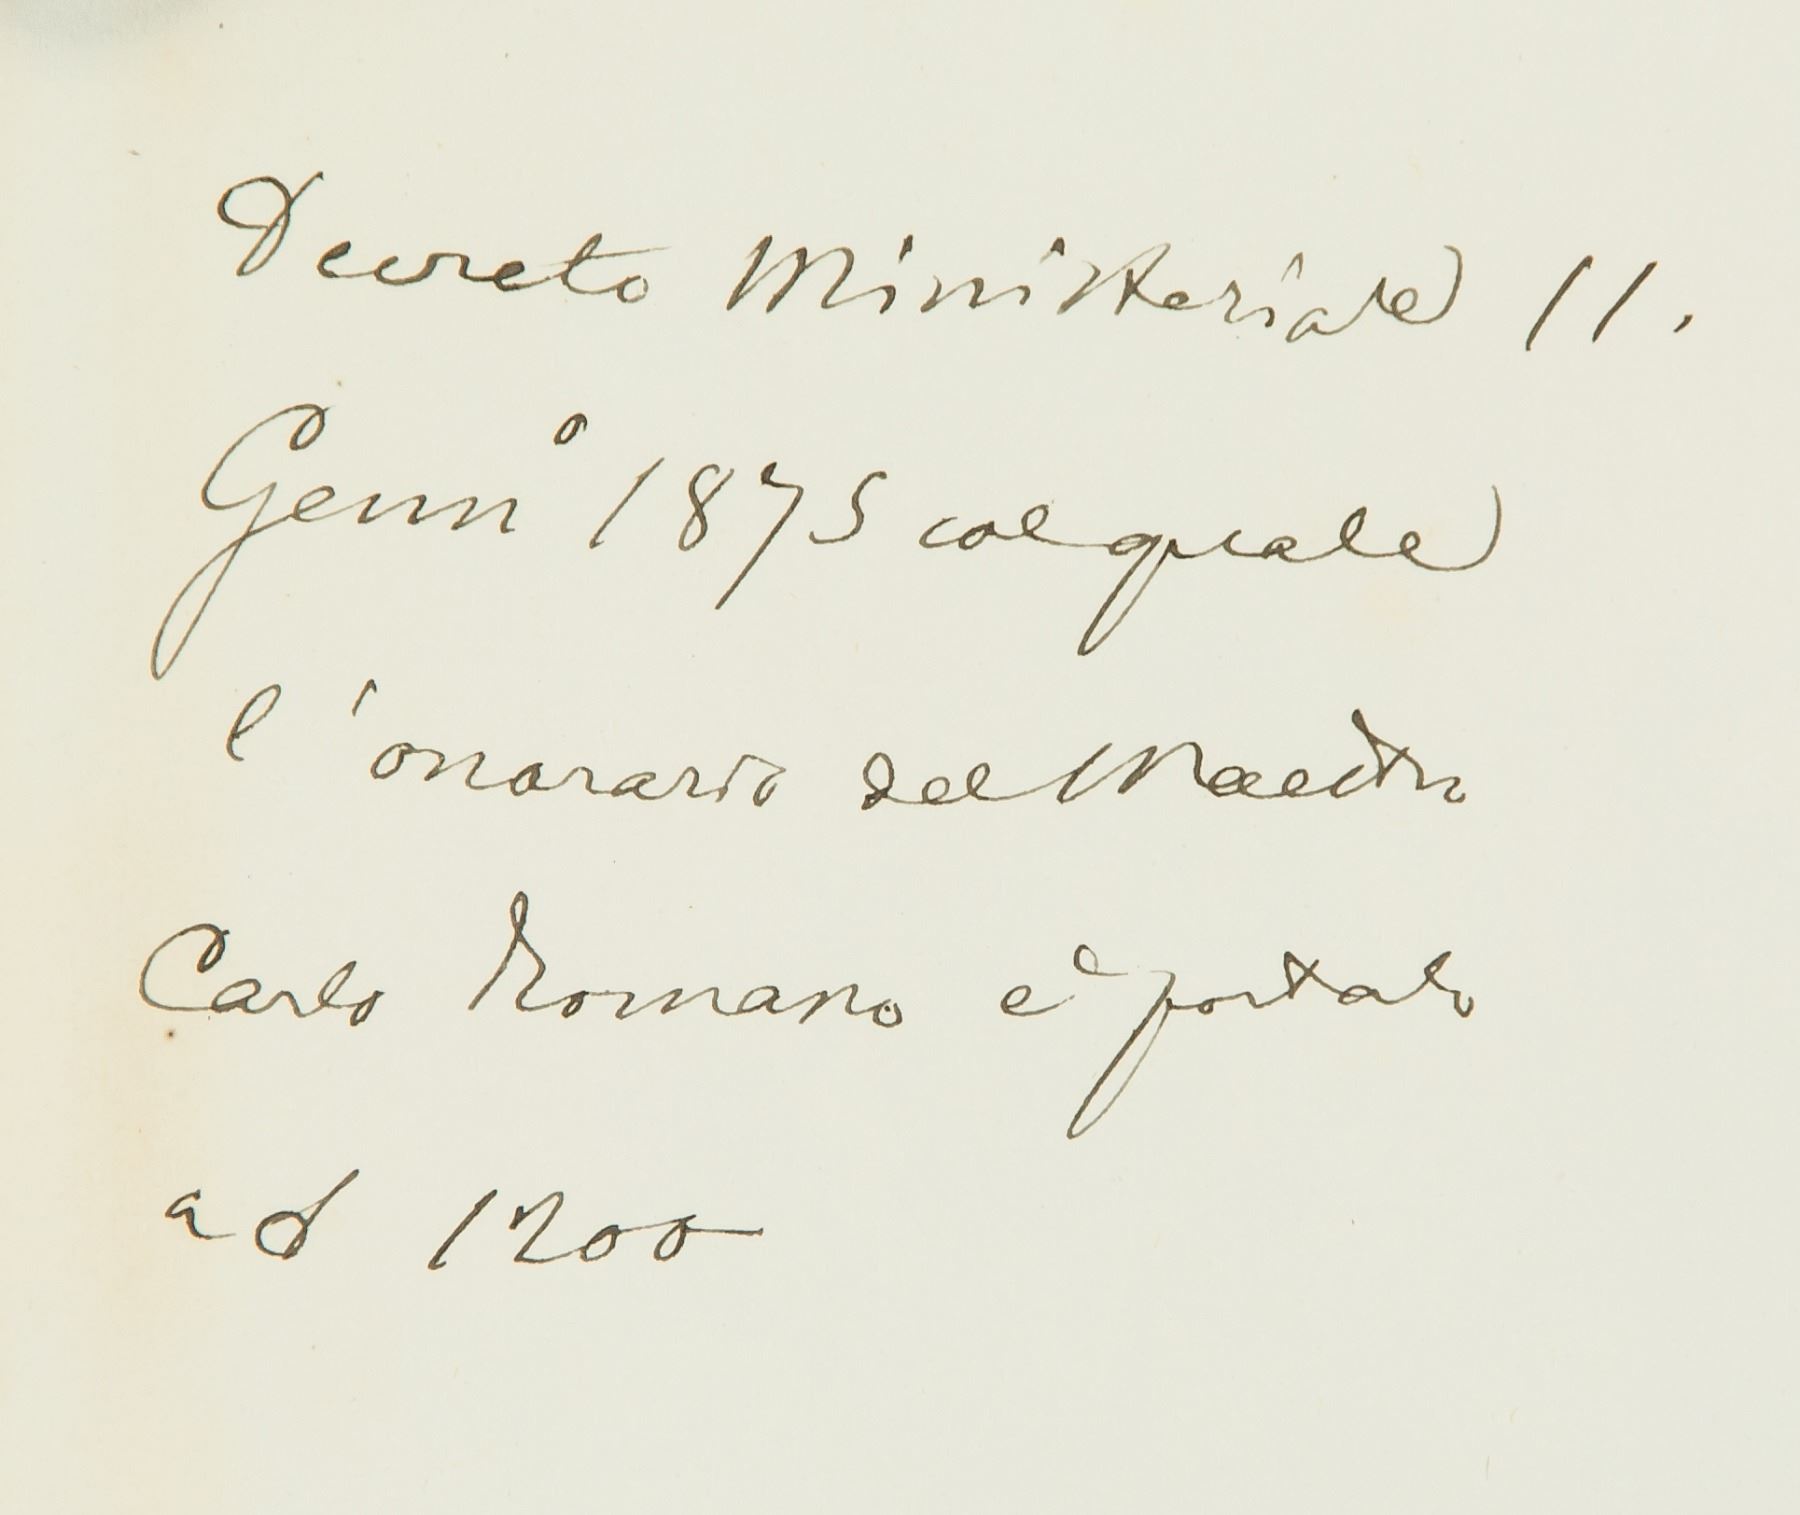 Decreto Ministeriale 11.
Genn° 1875 col quale
l'onorario del Maestro
Carlo Romano è portato
ad 1200